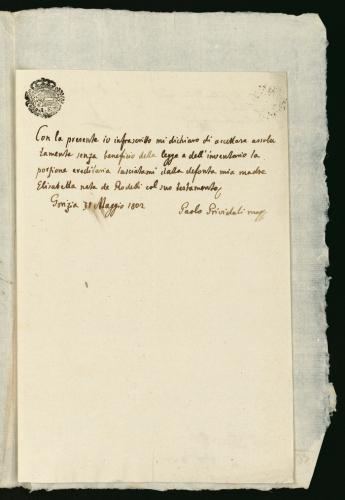 Con la presente io infrascritto mi dichiaro di accettare assolu
tamente senza beneficio della legge e dell'inventario la
porzione ereditaria lasciatami dalla defonta mia madre
Elisabetta nata de Rodelli col suo testamento
Gorizia 31 Maggio 1802
Paolo Prividali